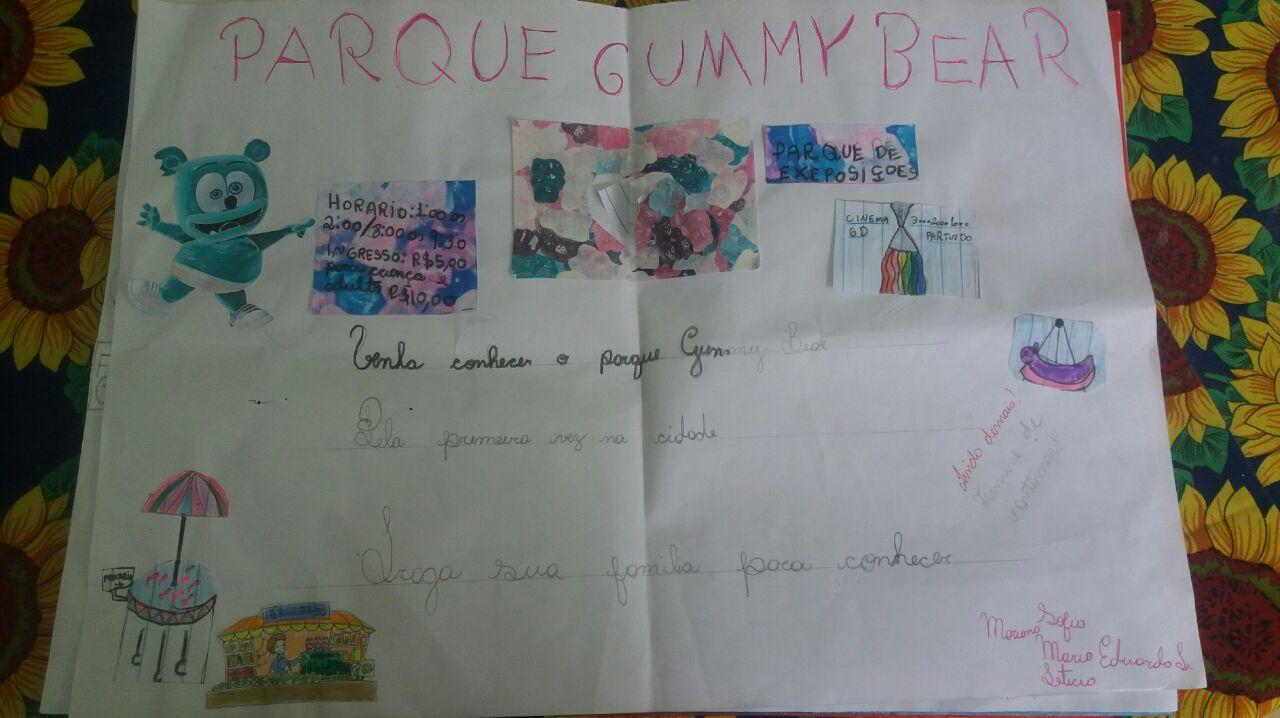 PARQUE GUMMY BEAR
HORARIO: 1:00 as
2:00/8:00 as 9:30
INGRESSO: R$5,00
para criança e
adulto R$10,00
PARQUE DE
EXEPOSIÇOES
CINEMA
6D
3000 2000 1000
PARTINDO
Venha conhecer o parque Gummy Bear
Pela primeira vez na cidade
Lindo demais!
Termine de
contornar!
Traga sua familia para conhecer
PESCARIA
Mariana Sofia
Maria Eduarda
Leticia